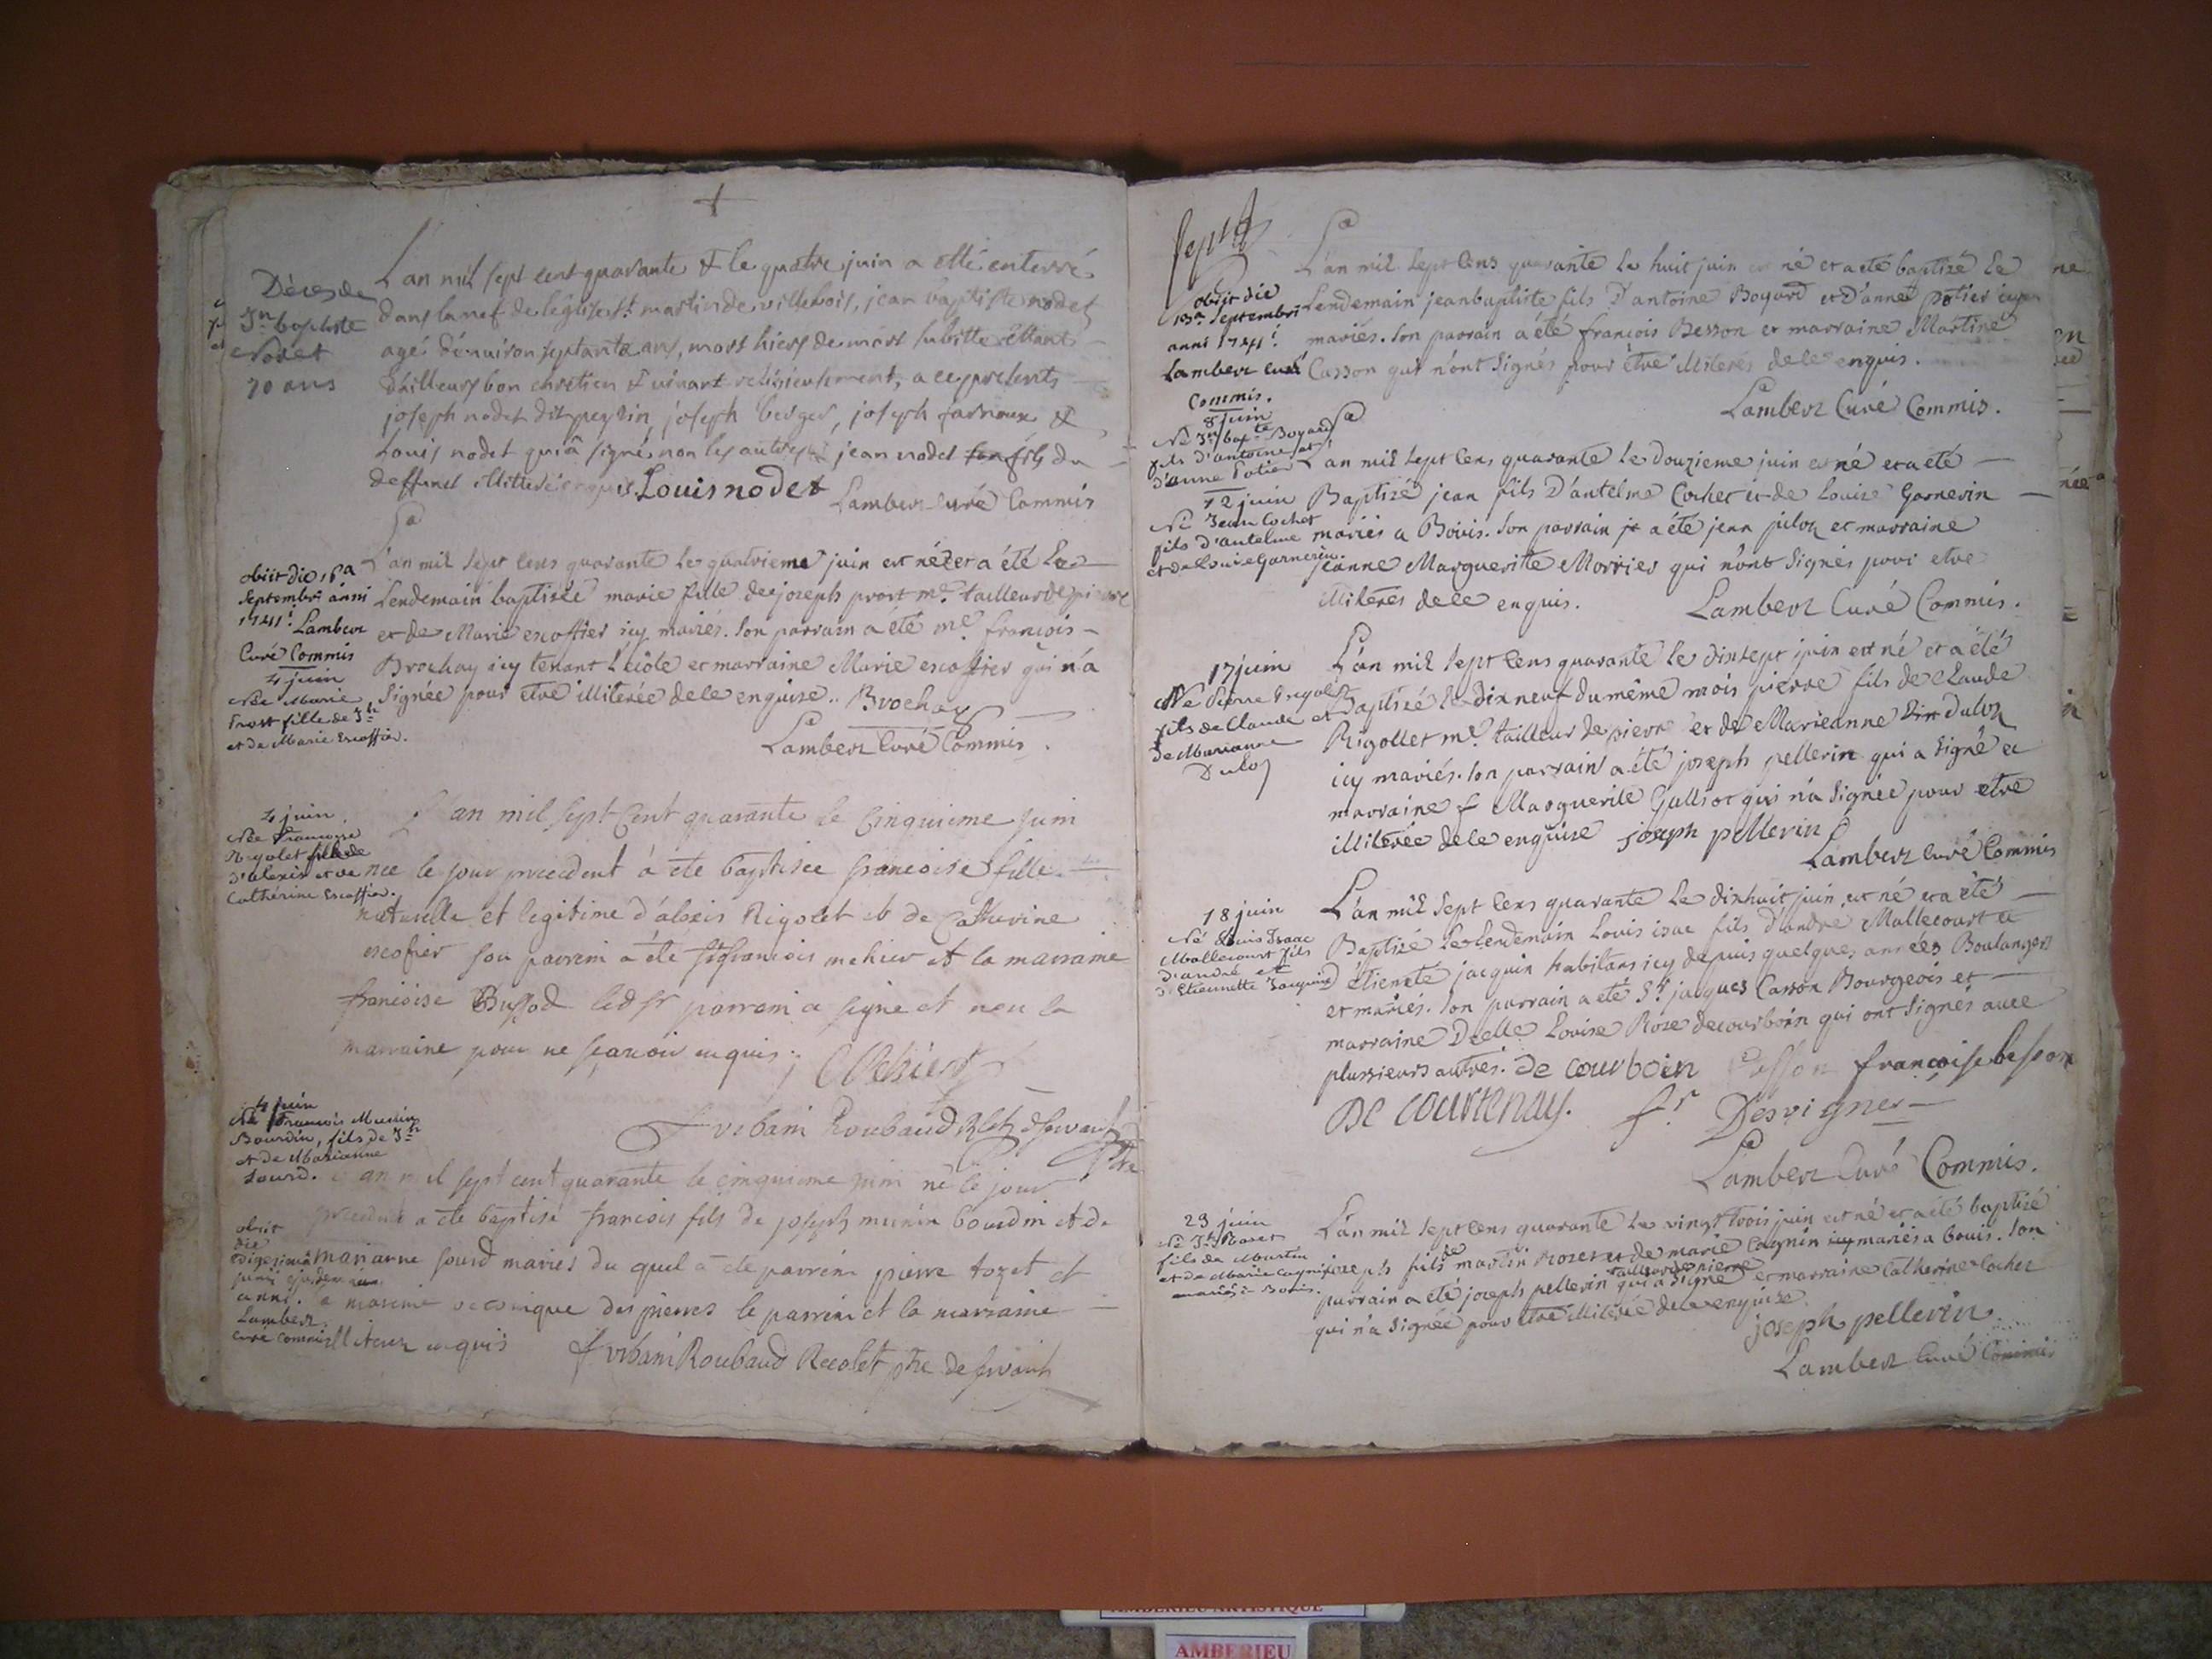 Décès de
Jn baptiste
Nodet
70 ans
L an mil sept cent quarante & le quatre juin a etté enterré
dans la nef de léglise st martin de villebois, jean baptiste nodet
agé d'énuiron septante ans, mort hiers de mort subitte éttant
d'ailleurs bon chrétien & viuant religieusement, a ce presents
joseph nodet dit peysin, joseph berger, joseph farnoux &
Louis nodet qui â signé non les autres jean nodet fils du
deffunct illitteré enquis Louis nodet
Lamberz Curé Commis
obiit die 16a
Septembri anni
1741! Lamberz
Curé Commis
4 juin
Née Marie
Prost fille de Jh
et de Marie Escoffier.
L'an mil sept Cens quarante le quatrieme juin est née et a été le
Lendemain baptisée marie fille de joseph prost me. tailleur de pierre
et de Marie escoffier icy mariés. son parrain a été me. françois
Brochay icy tenant L'ecôle et marraine Marie escoffier qui n'a
signée pour etre illiterée de ce enquise.. Brochay
Lamberz Curé Commis.
4 juin.
Née Francoise
Rigolet fille de
d'alexis et de
Catherine Escoffier.
L'an mil sept Cent quarante le Cinquieme juin
nee le jour precedent â ete baptisee francoise fille
naturelle et legitime d'alexis Rigolet et de Catherine
escofier son parrein â ete sr francois mehier et la marraine
francoise Bussod led sr parrein a signe et non la
marraine pour ne sçavoir enquis; Mehier
F vrbain Roubaud Rlet desservant
ptre
4 juin
Né François Munin
Bourdin, fils de Jh
et de Marianne
Sourd.
obiit
die
Vigesima
junii ejusdem
anni.
Lamberz
Curé Commis
L'an mil sept cent quarante le cinquieme juin né le jour
precedent a ete baptisé francois fils de joseph munin bourdin et de
marianne sourd mariés du quel â ete parrein pierre tozet et
marraine des pierres le parrein et la marraine
illiterez enquis F vrbain Roubaud Recolet ptre deservant
Sept
obiit die
13a Septembri
anni 1741!
Lamberz curé
Commis.
8 juin
Né Jn bapte Bogard
fils d'antoine et
d'anne Potier
L'an mil Sept Cens quarante le huit juin est né et a eté baptizé le
Lendemain jean baptiste fils d'antoine Bogard et d'anne potier icy
mariés. son parrain a été françois Besson et marraine Martine
Casson qui n'ont signés pour être illiterés de ce enquis.
Lamberz Curé Commis.
12 juin
Né Jean Cochet
fils d'antelme
et de Louise Garnerin.
L an mil Sept Cens quarante le douzieme juin est né et a eté
Baptizé jean fils d'antelme Cochet et de Louise Garnerin
mariés a Bouis. son parrain a été jean juloz et marraine
Jeanne Margueritte Morrier qui n'ont signés pour etre
illiterés de ce enquis. Lamberz Curé Commis.
17 juin
Né Pierre Rigolet
fils de Claude et
de Marianne
Duloz
L'an mil Sept Cens quarante le dixsept juin est né et a été
Baptizé le dixneuf du même mois pierre fils de Claude
Rigollet me. tailleur de pierre et de Marieanne Duloz
icy mariés. son parrain a été joseph pellerin qui a signé et
marraine Marguerite Galliot qui n'a signée pour etre
illiterée de ce enquise joseph pellerin
Lamberz Curé Commis
18 juin
Né Louis Isaac
Mallecourt fils
d'andré et
d'Etiennette Jacquin
L'an mil sept Cens quarante le dixhuit juin, est né et a été
Baptizé le Lendemain Louis isac fils d'andre Mallecourt et
d'étienete jacquin habitans icy depuis quelques années Boulangers
et mariés. son parrain a eté Sr jacques Casson Bourgeois et
marraine Delle Louise Roze decourboin qui ont signés auec
plussieurs autres. de courboin Casson francoise besson
De courtenay. fr Desvignes
Lamberz Curé Commis.
23 juin
Né Jh Rozet
fils de Martin
et de Marie Cagnin
mariés à Bouis.
L'an mil Sept Cens quarante le vingt trois juin est né et a été baptizé
joseph fils de martin Rozet et de marie Cagnin icy mariés a bouis. son
parrain a eté joseph pellerin tailleur de pierre qui a signé et marraine Catherine Cochet
qui n'a signée pour etre illiterée de ce enquise.
joseph pellerin
Lamberz Curé Commis
AMBERIEU ARTISTIQUE
AMBERIEU